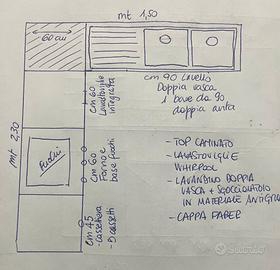 mt 1,50
60 cm
cm 90 lavello
Doppia vasca
1 base da 90
doppia anta
cm 60
Lavastoviglie
integrata
mt 2,30
Fuochi
cm 60
Forno e
base fuochi
cm 45
Cassettiera
- TOP LAMINATO
- LAVASTOVIGLIE
WHIRPOOL
- LAVANDINO DOPPIA
VASCA + SGOCCIOLATOIO
IN MATERIALE ANTIGRA
- CAPPA FABER
Subito